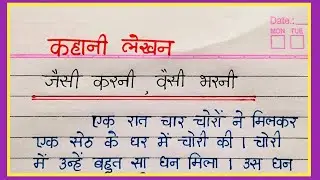 Date:
MON TUE
कहानी लेखन
जैसी करनी , वैसी भरनी
एक रात चार चोरों ने मिलकर
एक सेठ के घर में चोरी की । चोरी
में उन्हें बहुत सा धन मिला । उस धन